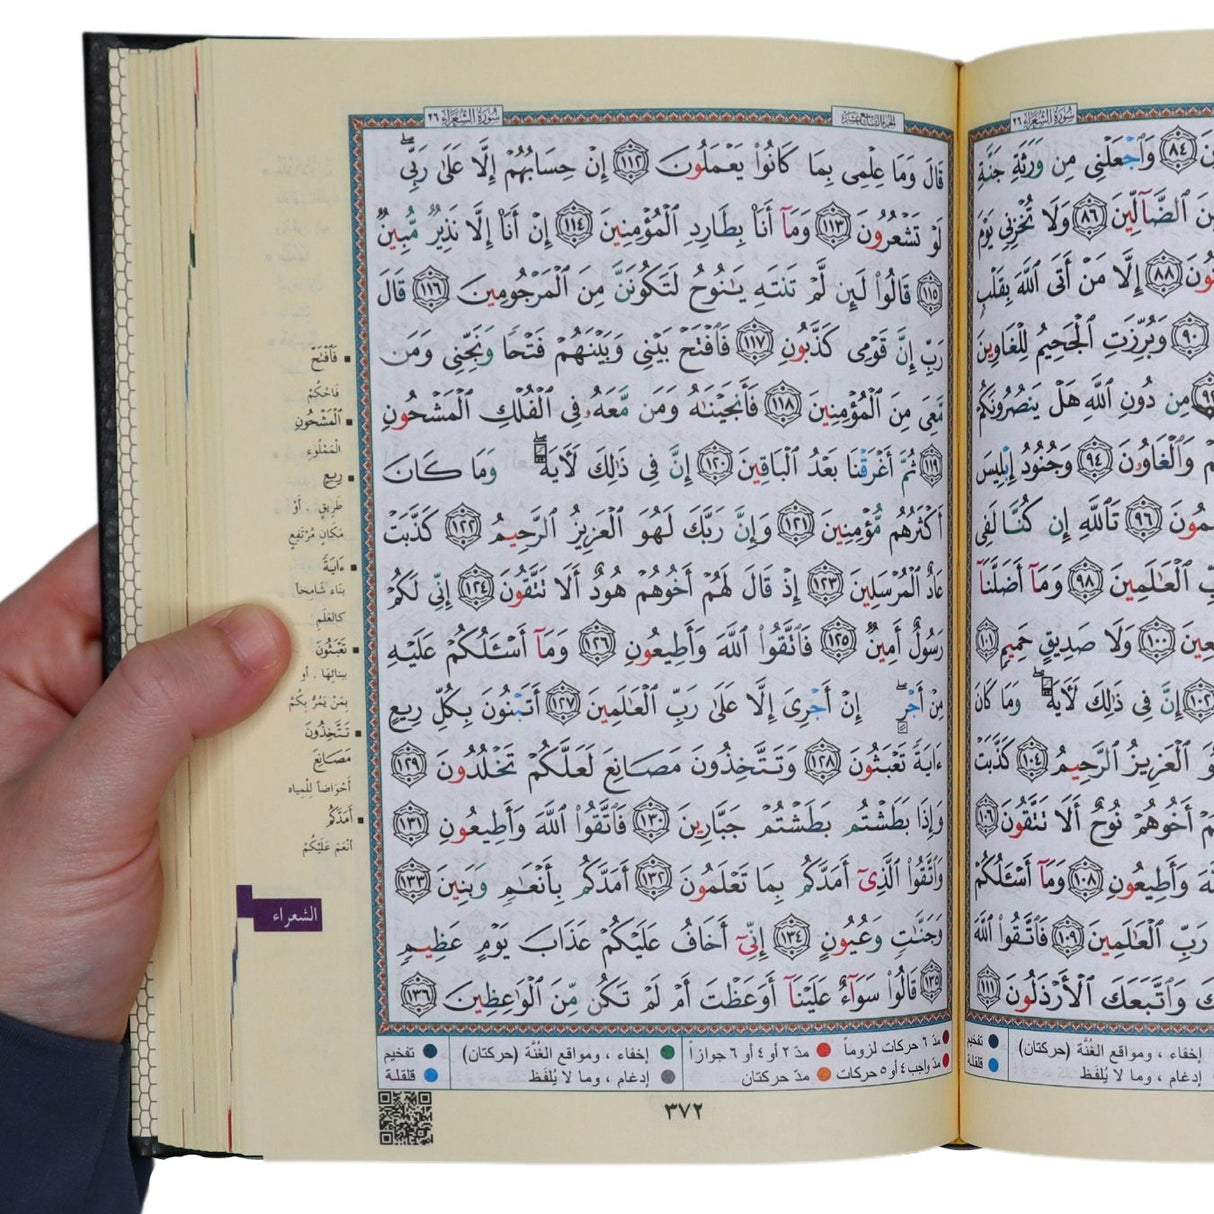 سُورَةُ الشُّعَرَاءِ ٢٦
الجزء التاسع عشر
قَالَ وَمَا عِلْمِى بِمَا كَانُوا۟ يَعْمَلُونَ ١١٢ إِنْ حِسَابُهُمْ إِلَّا عَلَىٰ رَبِّى ۖ
لَوْ تَشْعُرُونَ ١١٣ وَمَآ أَنَا۠ بِطَارِدِ ٱلْمُؤْمِنِينَ ١١٤ إِنْ أَنَا۠ إِلَّا نَذِيرٌ مُّبِينٌ
١١٥ قَالُوا۟ لَئِن لَّمْ تَنتَهِ يَـٰنُوحُ لَتَكُونَنَّ مِنَ ٱلْمَرْجُومِينَ ١١٦ قَالَ
رَبِّ إِنَّ قَوْمِى كَذَّبُونِ ١١٧ فَٱفْتَحْ بَيْنِى وَبَيْنَهُمْ فَتْحًا وَنَجِّنِى وَمَن
مَّعِىَ مِنَ ٱلْمُؤْمِنِينَ ١١٨ فَأَنجَيْنَـٰهُ وَمَن مَّعَهُۥ فِى ٱلْفُلْكِ ٱلْمَشْحُونِ
١١٩ ثُمَّ أَغْرَقْنَا بَعْدُ ٱلْبَاقِينَ ١٢٠ إِنَّ فِى ذَٰلِكَ لَـَٔايَةً ۖ وَمَا كَانَ
أَكْثَرُهُم مُّؤْمِنِينَ ١٢١ وَإِنَّ رَبَّكَ لَهُوَ ٱلْعَزِيزُ ٱلرَّحِيمُ ١٢٢ كَذَّبَتْ
عَادٌ ٱلْمُرْسَلِينَ ١٢٣ إِذْ قَالَ لَهُمْ أَخُوهُمْ هُودٌ أَلَا تَتَّقُونَ ١٢٤ إِنِّى لَكُمْ
رَسُولٌ أَمِينٌ ١٢٥ فَٱتَّقُوا۟ ٱللَّهَ وَأَطِيعُونِ ١٢٦ وَمَآ أَسْـَٔلُكُمْ عَلَيْهِ
مِنْ أَجْرٍ ۖ إِنْ أَجْرِىَ إِلَّا عَلَىٰ رَبِّ ٱلْعَـٰلَمِينَ ١٢٧ أَتَبْنُونَ بِكُلِّ رِيعٍ
ءَايَةً تَعْبَثُونَ ١٢٨ وَتَتَّخِذُونَ مَصَانِعَ لَعَلَّكُمْ تَخْلُدُونَ ١٢٩
وَإِذَا بَطَشْتُم بَطَشْتُمْ جَبَّارِينَ ١٣٠ فَٱتَّقُوا۟ ٱللَّهَ وَأَطِيعُونِ ١٣١
وَٱتَّقُوا۟ ٱلَّذِىٓ أَمَدَّكُم بِمَا تَعْلَمُونَ ١٣٢ أَمَدَّكُم بِأَنْعَـٰمٍ وَبَنِينَ ١٣٣
وَجَنَّـٰتٍ وَعُيُونٍ ١٣٤ إِنِّىٓ أَخَافُ عَلَيْكُمْ عَذَابَ يَوْمٍ عَظِيمٍ
١٣٥ قَالُوا۟ سَوَآءٌ عَلَيْنَآ أَوَعَظْتَ أَمْ لَمْ تَكُن مِّنَ ٱلْوَٰعِظِينَ ١٣٦
فَٱفْتَحْ
فَاحْكُمْ
ٱلْمَشْحُونِ
الْمَمْلُوءِ
رِيعٍ
طَرِيقٍ . أَوْ
مَكَانٍ مُرْتَفِعٍ
ءَايَةً
بِنَاءً شَامِخاً
كَالعَلَمِ
تَعْبَثُونَ
بِبِنَائِهَا . أو
بِمَنْ يَمُرُّ بِكُمْ
تَتَّخِذُونَ
مَصَانِعَ
أَحْوَاضاً لِلْمِيَاه
أَمَدَّكُمْ
أَنْعَمَ عَلَيْكُمْ
الشعراء
مدّ ٦ حركات لزوماً مدّ ٢ أو ٤ أو ٦ جوازاً إخفاء ، ومواقع الغُنَّة (حركتان) تفخيم
مدّ واجب ٤ أو ٥ حركات مدّ حركتان إدغام ، وما لا يُلفَظ قلقلة
٣٧٢
سُورَةُ الشُّعَرَاءِ ٢٦
٨٤ وَٱجْعَلْنِى مِن وَرَثَةِ جَنَّةِ
ٱلضَّآلِّينَ ٨٦ وَلَا تُخْزِنِى يَوْمَ
٨٨ إِلَّا مَنْ أَتَى ٱللَّهَ بِقَلْبٍ
٩٠ وَبُرِّزَتِ ٱلْجَحِيمُ لِلْغَاوِينَ
مِن دُونِ ٱللَّهِ هَلْ يَنصُرُونَكُمْ
وَٱلْغَاوُۥنَ ٩٤ وَجُنُودُ إِبْلِيسَ
٩٦ تَٱللَّهِ إِن كُنَّا لَفِى
ٱلْعَـٰلَمِينَ ٩٨ وَمَآ أَضَلَّنَآ
١٠٠ وَلَا صَدِيقٍ حَمِيمٍ ١٠١
١٠٢ إِنَّ فِى ذَٰلِكَ لَـَٔايَةً ۖ وَمَا كَانَ
ٱلْعَزِيزُ ٱلرَّحِيمُ ١٠٤ كَذَّبَتْ
أَخُوهُمْ نُوحٌ أَلَا تَتَّقُونَ ١٠٦
وَأَطِيعُونِ ١٠٨ وَمَآ أَسْـَٔلُكُمْ
رَبِّ ٱلْعَـٰلَمِينَ ١٠٩ فَٱتَّقُوا۟ ٱللَّهَ
وَٱتَّبَعَكَ ٱلْأَرْذَلُونَ ١١١
إخفاء ، ومواقع الغُنَّة (حركتان) تفخيم
إدغام ، وما لا يُلفَظ قلقلة